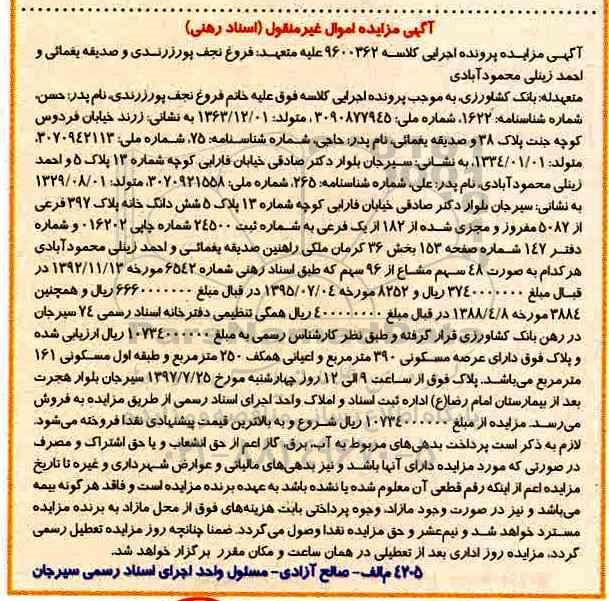 آگهی مزایده اموال غیرمنقول (اسناد رهنی)
آگهی مزایده پرونده اجرایی کلاسه ۹۶۰۰۳۶۲ علیه متعهد: فروغ نجف پورزرندی و صدیقه یغمائی و
احمد زینلی محمودآبادی
متعهدله: بانک کشاورزی، به موجب پرونده اجرایی کلاسه فوق علیه خانم فروغ نجف پورزرندی، نام پدر: حسن،
شماره شناسنامه: ۱۶۲۲، شماره ملی: ۳۰۹۰۸۷۷۹۴۵، متولد: ۱۳۶۳/۱۲/۰۱ به نشانی: زرند خیابان فردوس
کوچه جنت پلاک ۳۸ و صدیقه یغمائی، نام پدر: حاجی، شماره شناسنامه: ۷۵، شماره ملی: ۳۰۷۰۹۴۲۱۱۳،
متولد: ۱۳۳۴/۰۱/۰۱، به نشانی: سیرجان بلوار دکتر صادقی خیابان فارابی کوچه شماره ۱۳ پلاک ۵ و احمد
زینلی محمودآبادی، نام پدر: علی، شماره شناسنامه: ۲۶۵، شماره ملی: ۳۰۷۰۹۲۱۵۵۸، متولد: ۱۳۲۹/۰۸/۰۱
به نشانی: سیرجان بلوار دکتر صادقی خیابان فارابی کوچه شماره ۱۳ پلاک ۵ شش دانگ خانه پلاک ۳۹۷ فرعی
از ۵۰۸۷ مفروز و مجزی شده از ۱۸۲ از یک فرعی به شماره ثبت ۲۴۵۰۰ شماره چاپی ۰۱۶۲۰۲ و شماره
دفتر ۱۴۷ شماره صفحه ۱۵۳ بخش ۳۶ کرمان ملکی راهنین صدیقه یغمائی و احمد زینلی محمودآبادی
هرکدام به صورت ۴۸ سهم مشاع از ۹۶ سهم که طبق اسناد رهنی شماره ۶۵۴۲ مورخه ۱۳۹۲/۱۱/۱۳ در
قبال مبلغ ۳۷۴۰۰۰۰۰۰۰ ریال و ۸۲۵۲ مورخه ۱۳۹۵/۰۷/۰۴ در قبال مبلغ ۶۶۶۰۰۰۰۰۰۰ ریال و همچنین
۳۸۸۴ مورخه ۱۳۸۸/۴/۸ در قبال مبلغ ۴۰۰۰۰۰۰۰۰ ریال همگی تنظیمی دفترخانه اسناد رسمی ۷۴ سیرجان
در رهن بانک کشاورزی قرار گرفته و طبق نظر کارشناس رسمی به مبلغ ۱۰۷۳۴۰۰۰۰۰۰ ریال ارزیابی شده
و پلاک فوق دارای عرصه مسکونی ۳۹۰ مترمربع و اعیانی همکف ۲۵۰ مترمربع و طبقه اول مسکونی ۱۶۱
مترمربع می‌باشد. پلاک فوق از ساعت ۹ الی ۱۲ روز چهارشنبه مورخ ۱۳۹۷/۷/۲۵ سیرجان بلوار هجرت
بعد از بیمارستان امام رضا(ع) اداره ثبت اسناد و املاک واحد اجرای اسناد رسمی از طریق مزایده به فروش
می‌رسد. مزایده از مبلغ ۱۰۷۳۴۰۰۰۰۰۰ ریال شروع و به بالاترین قیمت پیشنهادی نقدا فروخته می‌شود.
لازم به ذکر است پرداخت بدهی‌های مربوط به آب، برق، گاز اعم از حق انشعاب و یا حق اشتراک و مصرف
در صورتی که مورد مزایده دارای آنها باشد و نیز بدهی‌های مالیاتی و عوارض شهرداری و غیره تا تاریخ
مزایده اعم از اینکه رقم قطعی آن معلوم شده یا نشده باشد به عهده برنده مزایده است و فاقد هر گونه بیمه
می‌باشد و نیز در صورت وجود مازاد، وجوه پرداختی بابت هزینه‌های فوق از محل مازاد به برنده مزایده
مسترد خواهد شد و نیم‌عشر و حق مزایده نقدا وصول می‌گردد. ضمنا چنانچه روز مزایده تعطیل رسمی
گردد، مزایده روز اداری بعد از تعطیلی در همان ساعت و مکان مقرر برگزار خواهد شد.
۴۲۰۵ م‌الف- صالح آزادی- مسئول واحد اجرای اسناد رسمی سیرجان